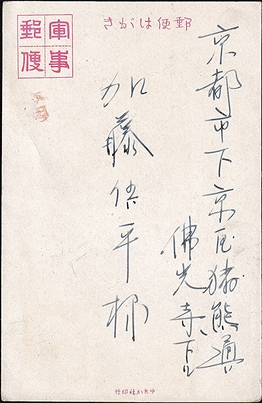 軍事
郵便
郵便はがき
京都市下京区猪熊通
佛光寺下ル
加藤信平様